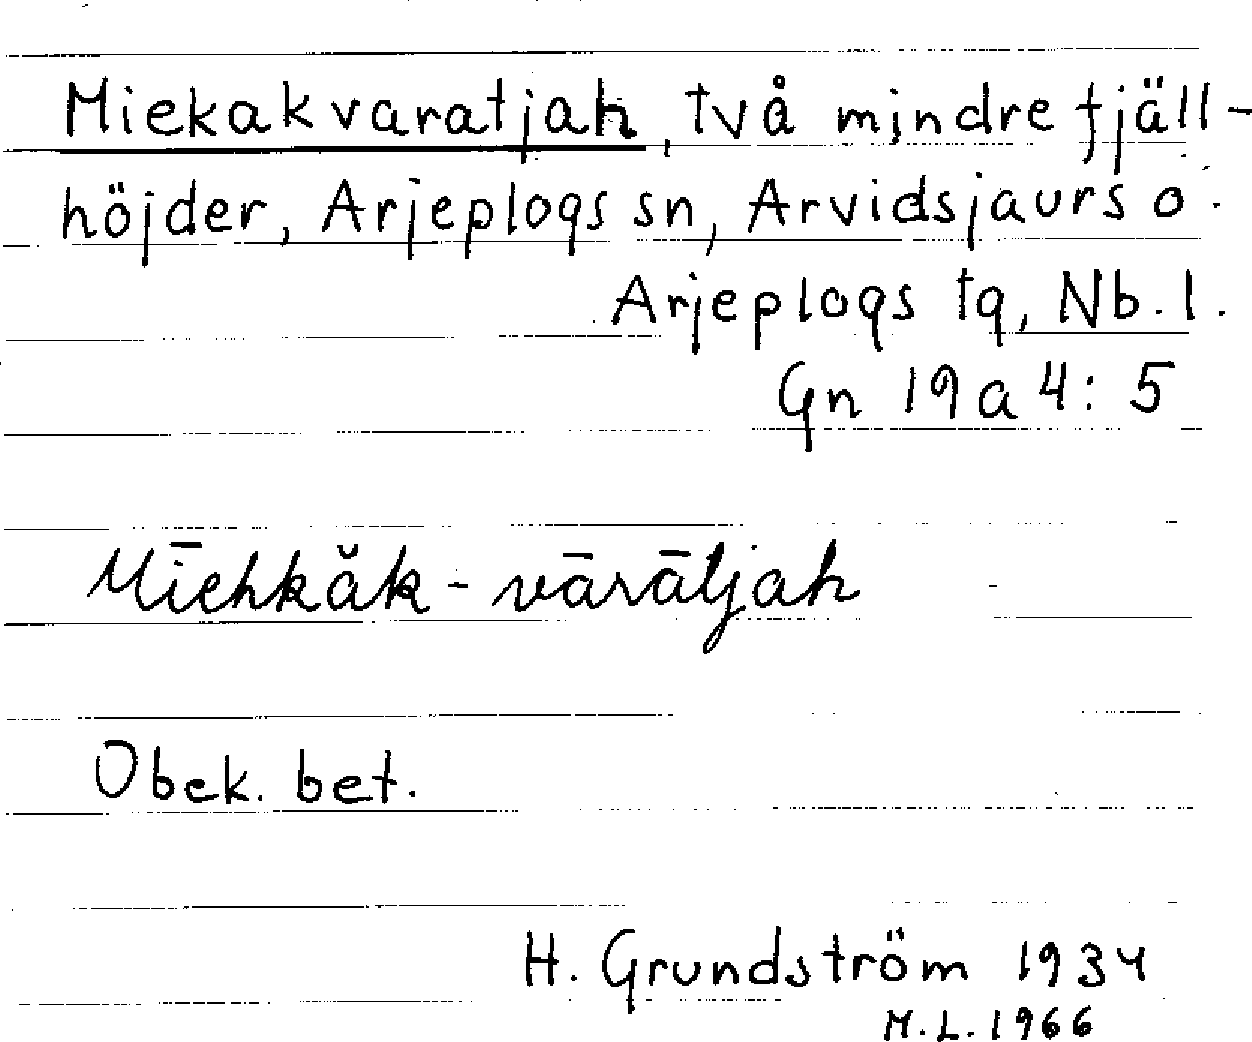 Miekakvaratjah, två mindre fjäll-
höjder, Arjeplogs sn, Arvidsjaurs o.
Arjeplogs tg, Nb. l.
Gn 19 a 4: 5
Mīehkăk-vārātjah
Obek. bet.
H. Grundström 1934
M.L. 1966